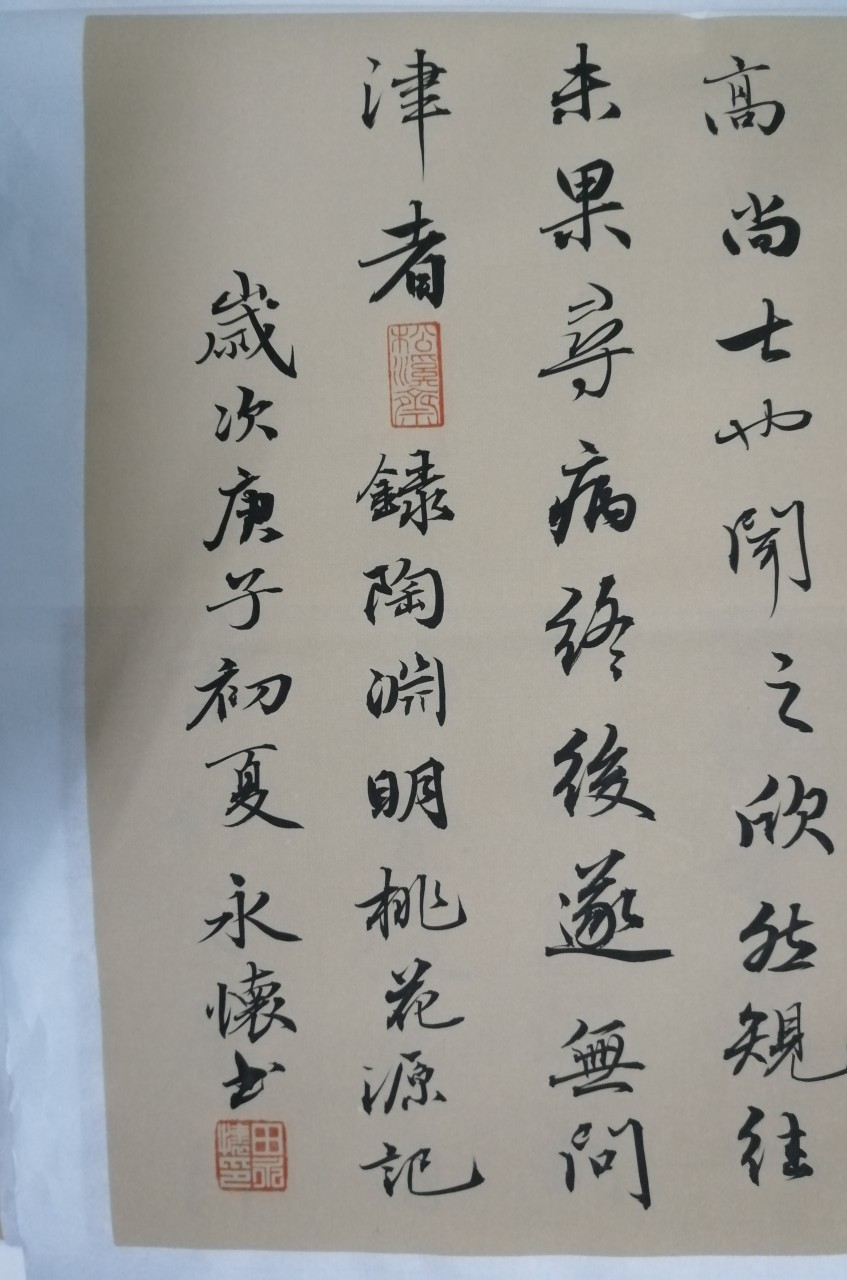 高尚士也聞之欣然規往
未果尋病終後遂無問
津者
松溪齋
錄陶淵明桃花源記
歲次庚子初夏永懷书
田永懷印